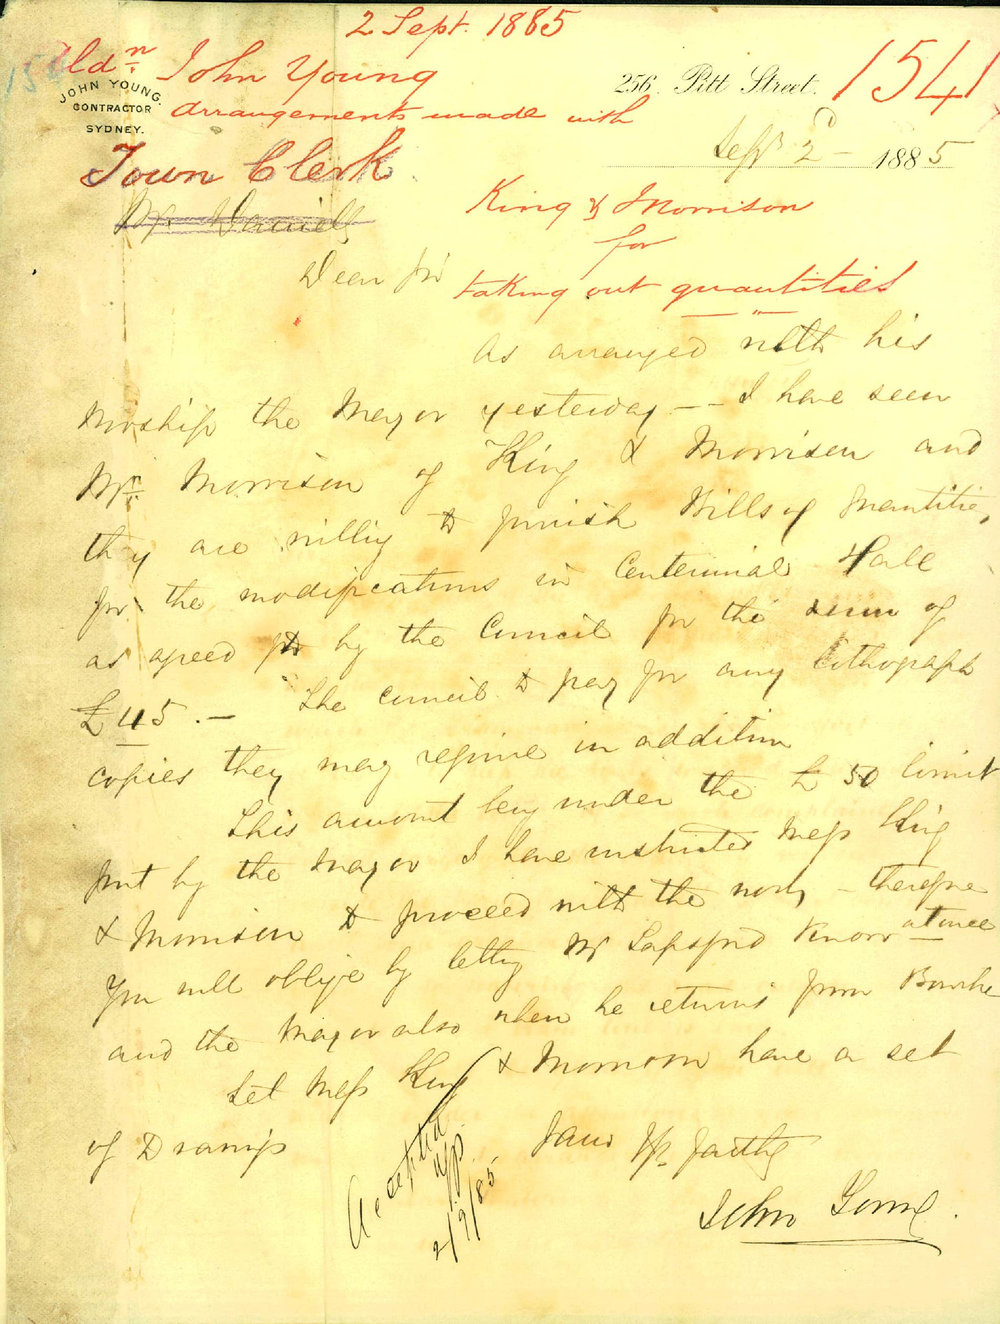 2 Sept. 1885
Aldn John Young
JOHN YOUNG.
CONTRACTOR
SYDNEY.
256. Pitt Street.
1541
arrangements made with
Town Clerk
Sepr 2d — 1885
King & Morrison
for
taking out quantities
Mr Daniels
Dear Sir
As arranged with his
Worship the Mayor yesterday — I have seen
Mr Morrison of King & Morrison and
they are willing to furnish Bills of Quantities,
for the modifications in Centennial Hall
as agreed to by the Council for the sum of
£45. — The Council to pay for any lithograph
copies they may require in addition
This amount being under the £50 limit
put by the Mayor I have instructed Mess King
& Morrison to proceed with the work, — therefore
You will oblige by letting Mr Sapsford know at once
and the Mayor also when he returns from Bourke
Let Mess King & Morrison have a set
of Drawings
Yours Faithy
John Young.
Accepted
2/9/85